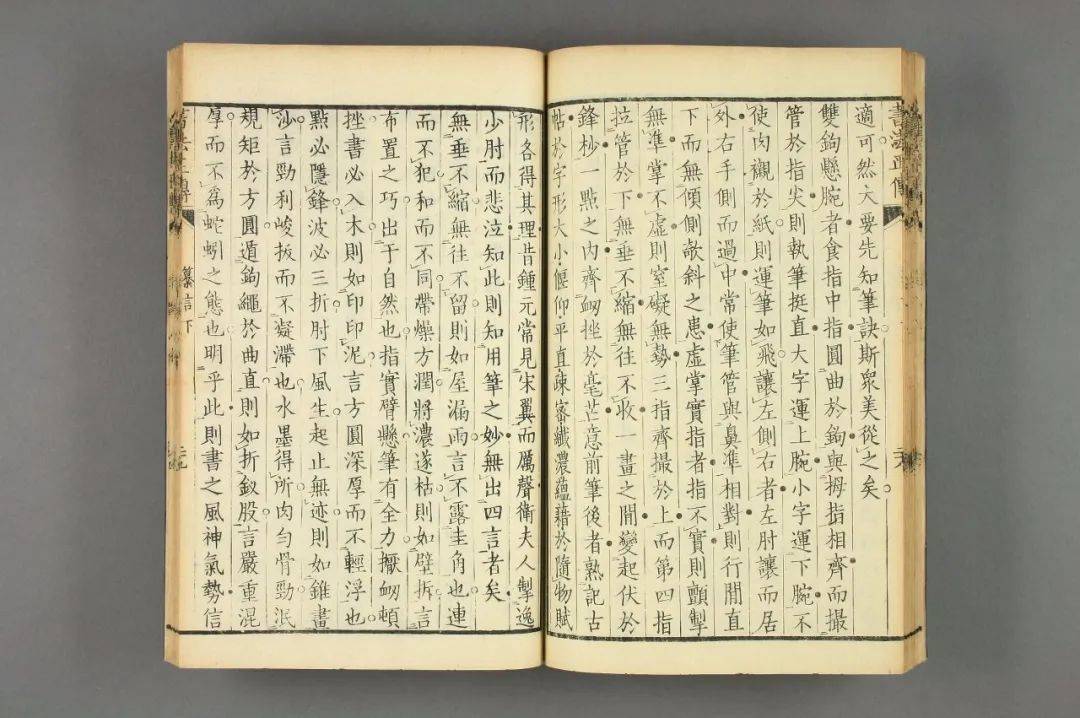 書法正傳
適可然大要先知筆訣斯衆美從之矣
雙鉤懸腕者食指中指圓曲於鉤與拇指相齊而撮
管於指尖則執筆挺直大字運上腕小字運下腕不
使肉襯於紙則運筆如飛讓左側右者左肘讓而居
外右手側而過中常使筆管與鼻準相對則行間直
下而無傾側欹斜之患虛掌實指者指不實則顫掣
無準掌不虛則窒礙無勢三指齊撮於上而第四指
拉管於下無垂不縮無往不收一畫之間變起伏於
鋒杪一點之內齊衂挫於毫芒意前筆後者熟記古
帖於字形大小偃仰平直疎密纖濃蘊藉於隨物賦
形各得其理昔鍾元常見宋翼而厲聲衛夫人掣逸
少肘而悲泣知此則知用筆之妙無出四言者矣
無垂不縮無往不留則如屋漏雨言不露圭角也連
而不犯和而不同帶燥方潤將濃遂枯則如壁拆言
布置之巧出于自然也指實臂懸筆有全力擫衂頓
挫書必入木則如印印泥言方圓深厚而不輕浮也
點必隱鋒波必三折肘下風生起止無迹則如錐畫
沙言勁利峻拔而不凝滯也水墨得所肉勻骨勁泯
規矩於方圓遁鉤繩於曲直則如折釵股言嚴重混
厚而不爲蛇蚓之態也明乎此則書之風神氣勢信
纂言下